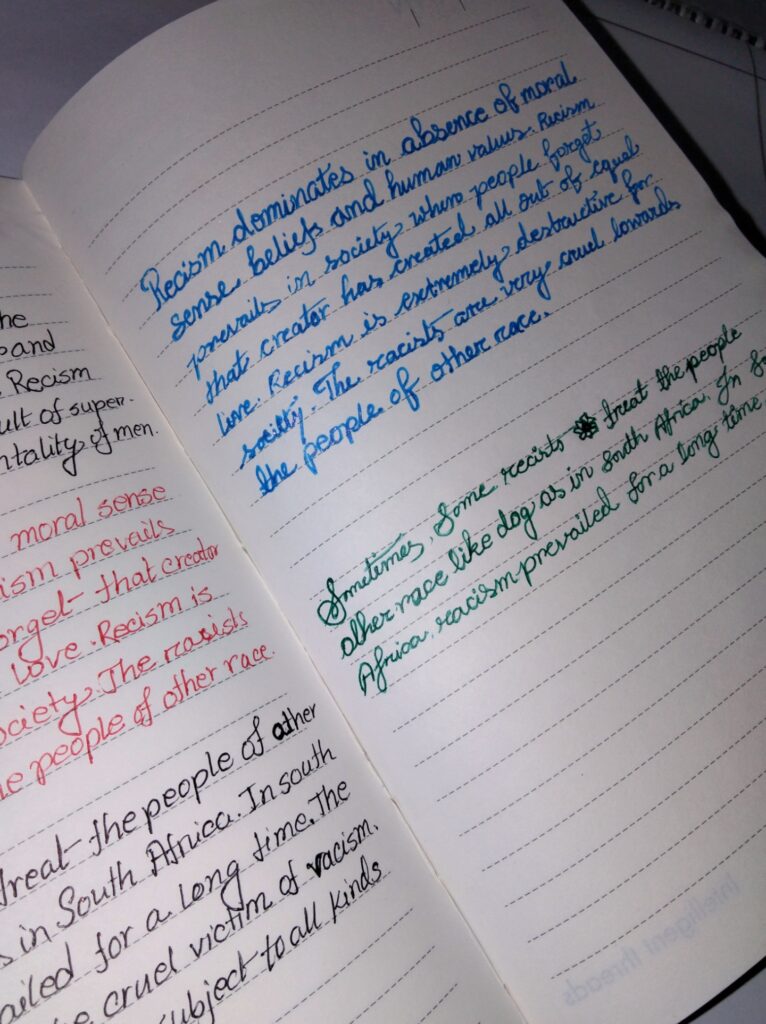 he
and
. Recism
ult of super-
ntality of men.
moral sense
ism prevails
orget that creator
love. Recism is
ociety. The racists
e people of other race.
treat the people of other
s in South Africa. In south
ailed for a long time. The
e cruel victim of racism.
subject to all kinds
Recism dominates in absence of moral
sense, beliefs and human values. Recism
prevails in society where people forget
that creator has created all out of equal
love. Recism is extremely destructive for
society. The racists are very cruel towards
the people of other race.
Sometimes, some recists treat the people
other race like dog as in South Africa. In
Africa, racism prevailed for a long time.
Intelligent threads